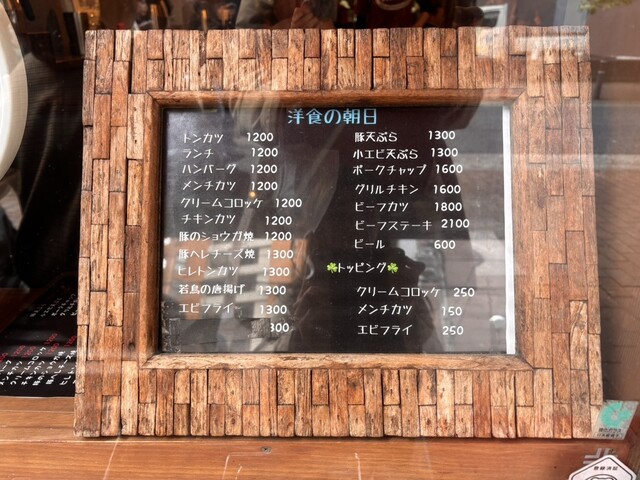 洋食の朝日
トンカツ 1200
ランチ 1200
ハンバーグ 1200
メンチカツ 1200
クリームコロッケ 1200
チキンカツ 1200
豚のショウガ焼 1200
豚ヘレチーズ焼 1300
ヒレトンカツ 1300
若鳥の唐揚げ 1300
エビフライ 1300
300
豚天ぷら 1300
小エビ天ぷら 1300
ポークチャップ 1600
グリルチキン 1600
ビーフカツ 1800
ビーフステーキ 2100
ビール 600
トッピング
クリームコロッケ 250
メンチカツ 150
エビフライ 250